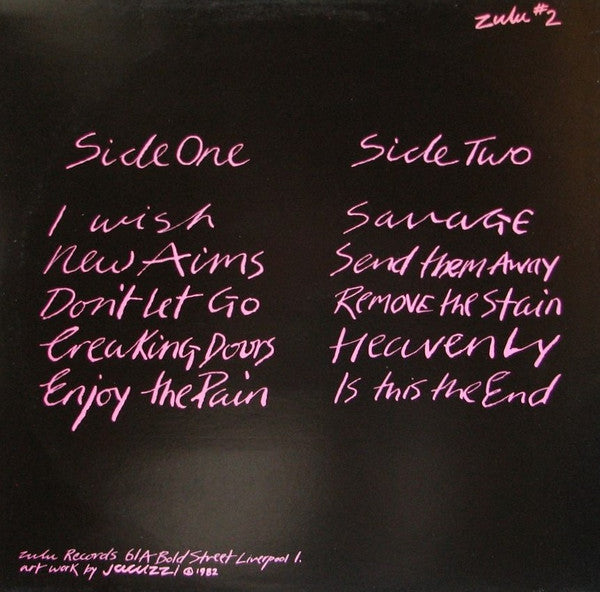 zulu #2
Side One
I wish
New Aims
Don't Let Go
Creaking Doors
Enjoy the Pain
Side Two
SavaGE
Send them Away
REMOVE the Stain
HeavenLy
Is this the End
zulu Records 61A Bold Street Liverpool 1.
art work by jacuzzi ℗ 1982